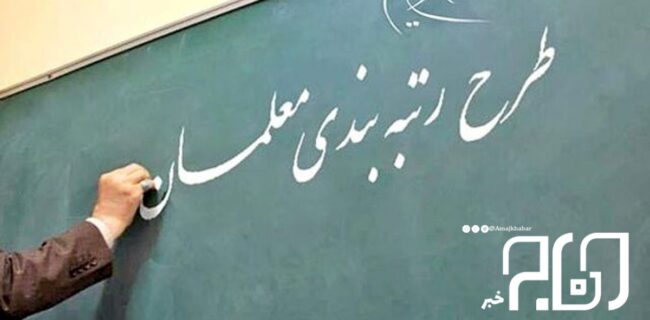 طرح رتبه بندی معلمان
@Amajkhabar
خبر